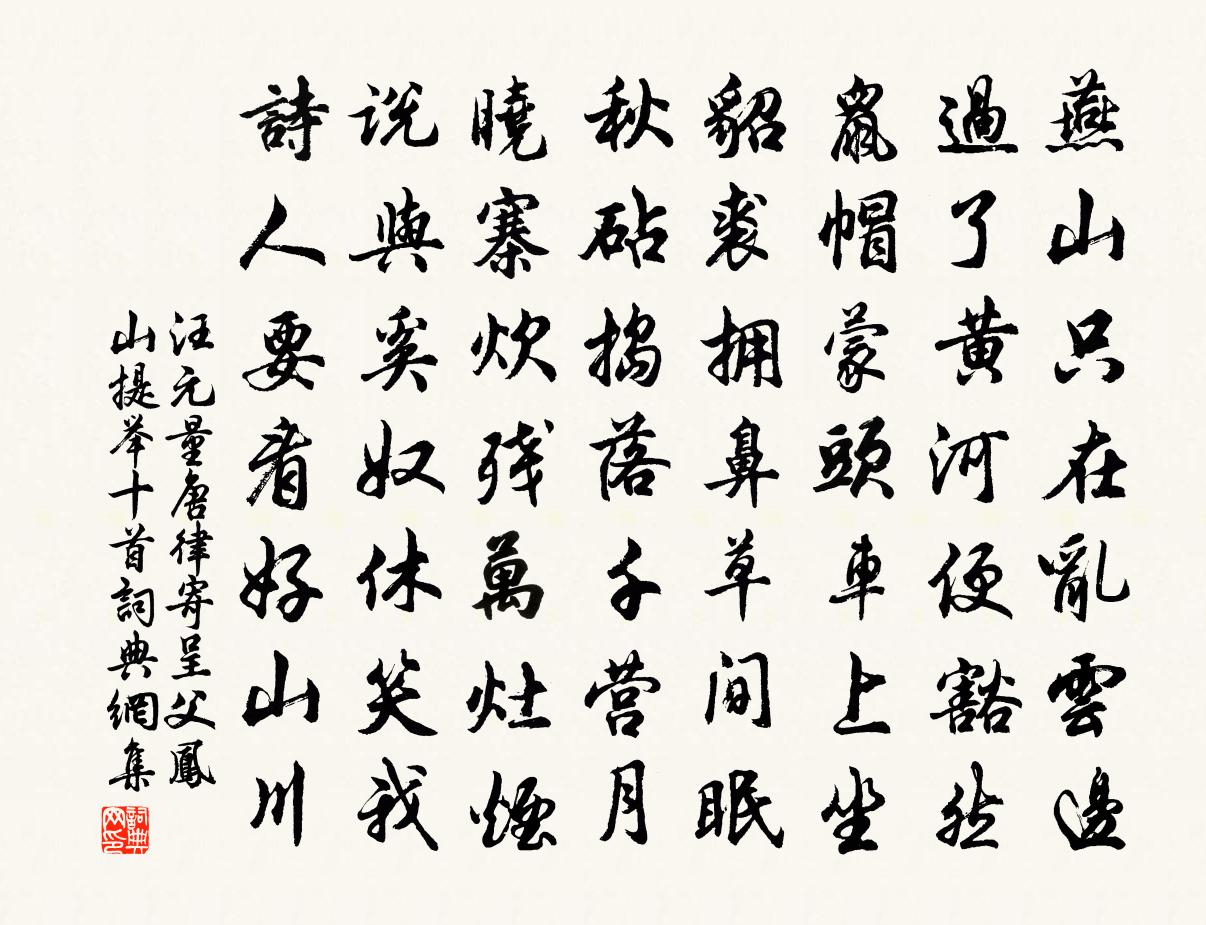 燕山只在亂雲邊
過了黃河便豁然
氈帽蒙頭車上坐
貂裘拥鼻草間眠
秋砧搗落千营月
曉寨炊残萬灶煙
说與奚奴休笑我
詩人要看好山川
汪元量唐律寄呈父鳳
山提举十首詞典網集
詞典网印